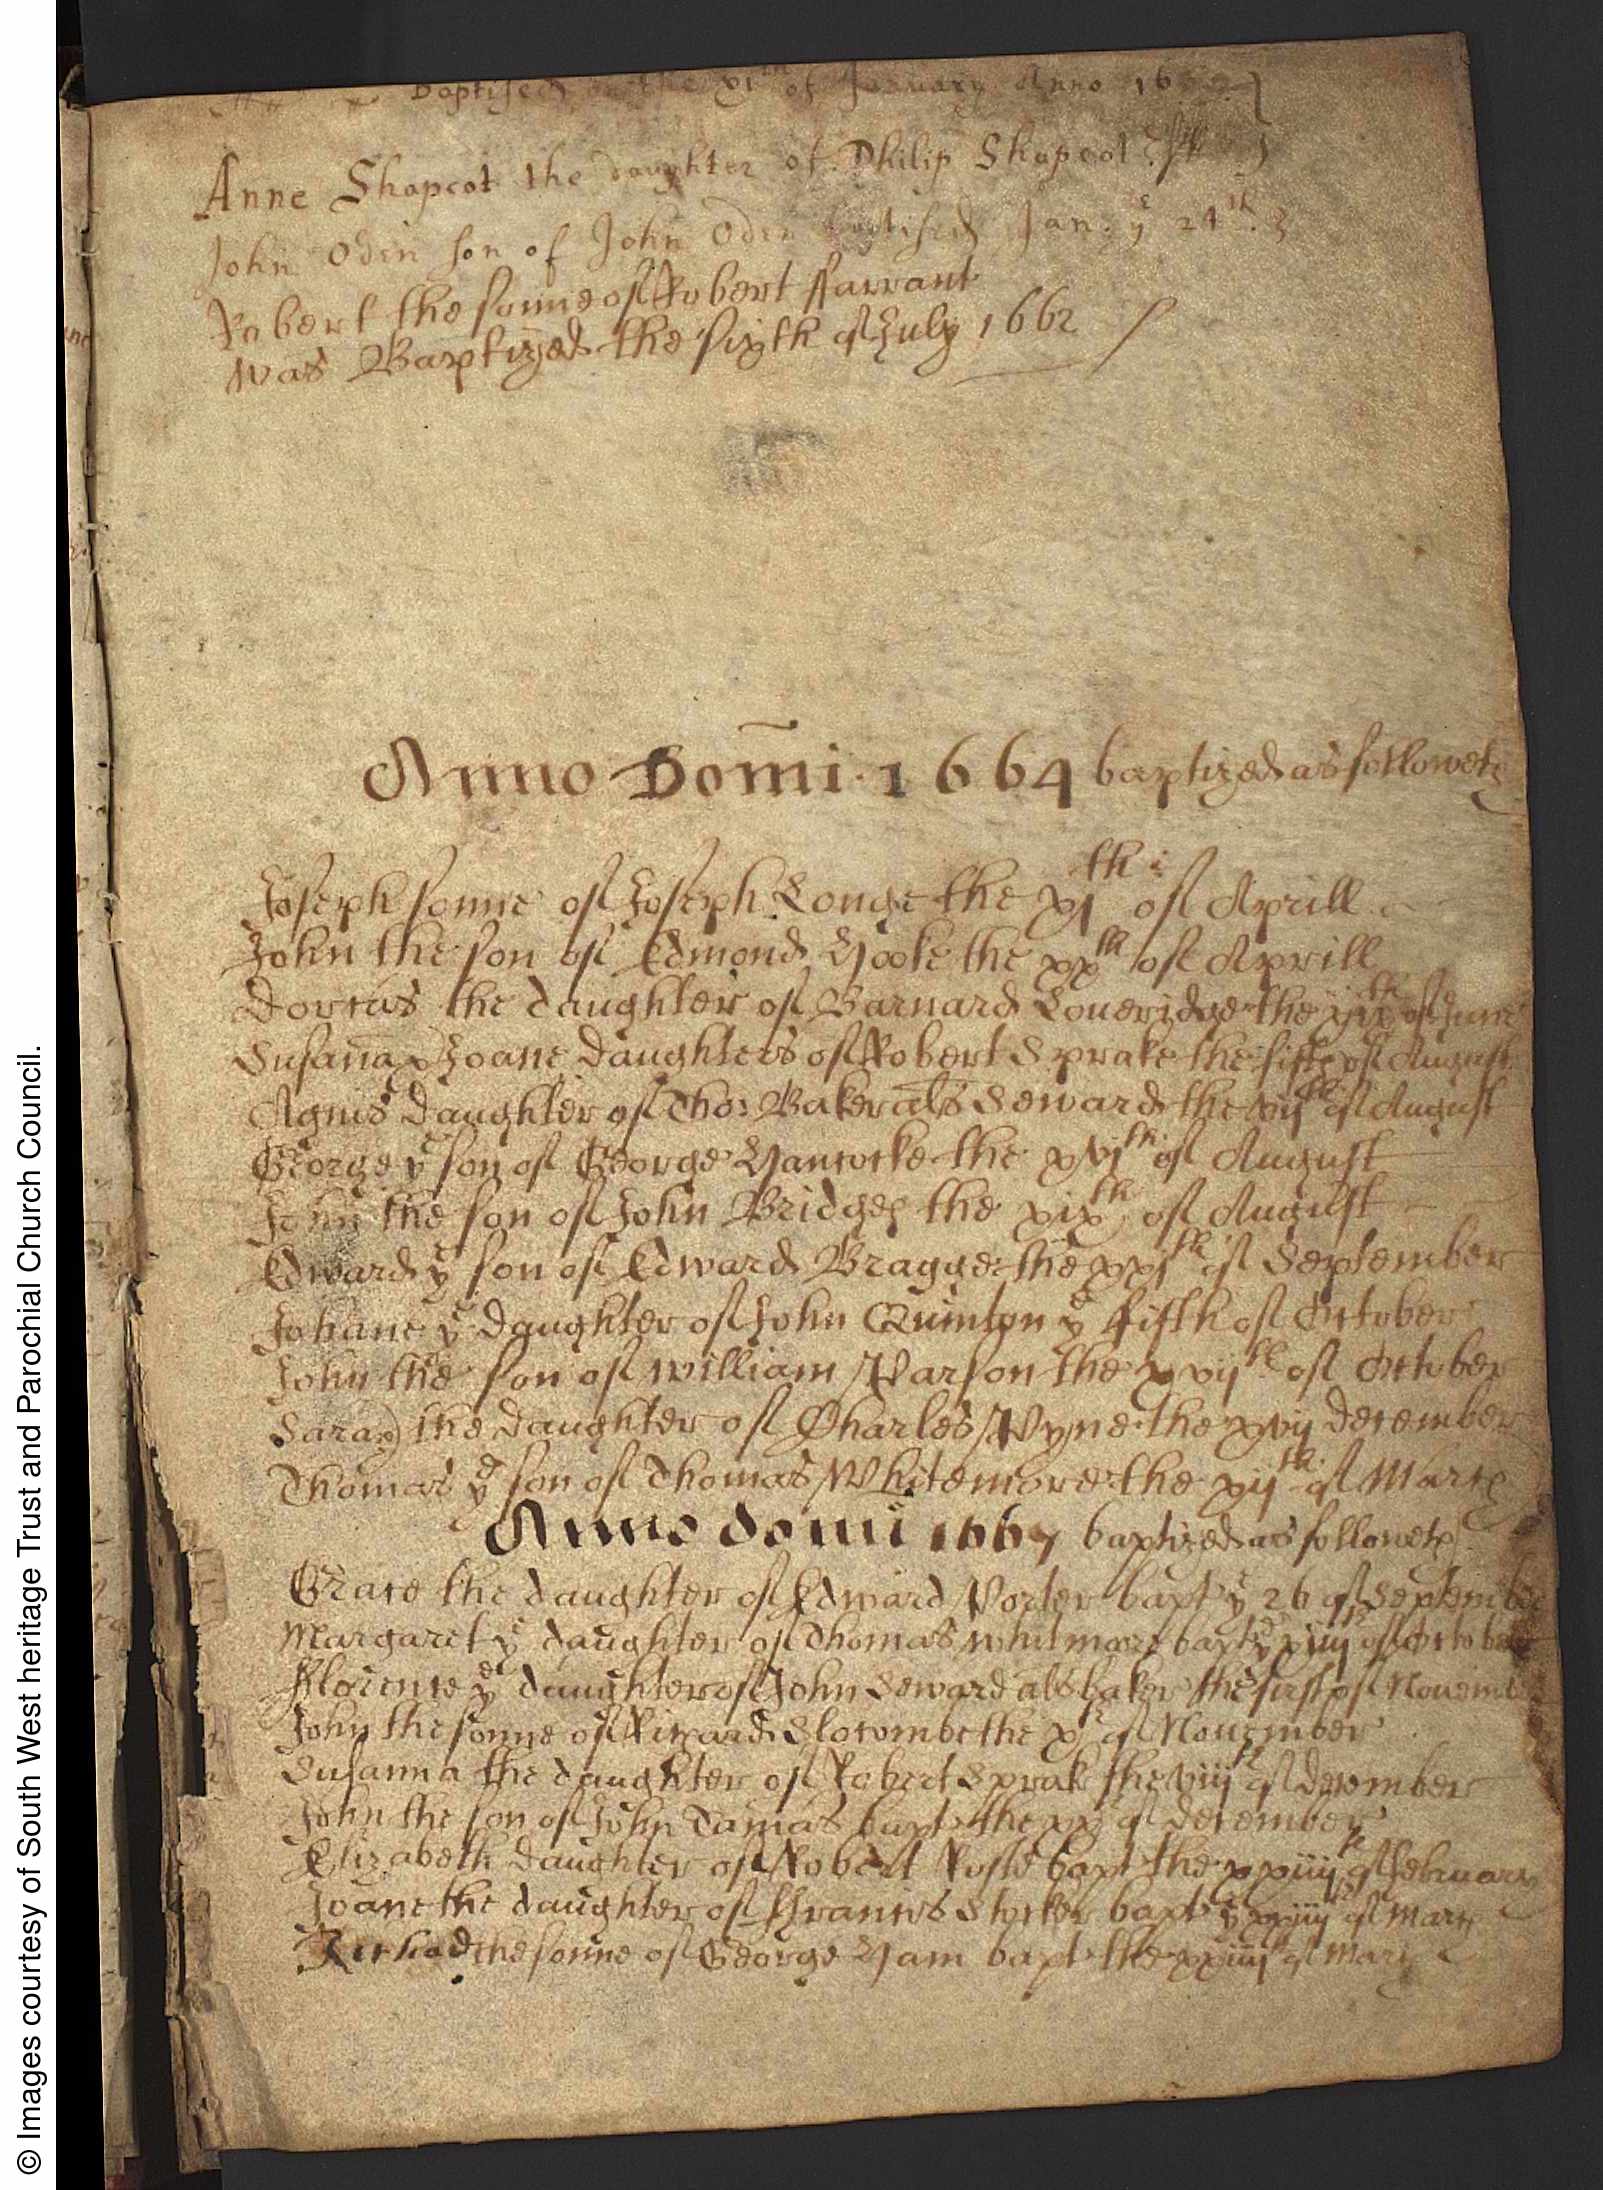 Baptised on the xith of January Anno 16
Anne Shapcot the daughter of Philip Shapcot
John Oden son of John Oden baptised Jan. ye 24th
Robert the sonne of Robert ffarrant
was Baptized the sixth of July 1662
Anno Domi 1664 baptized as followeth
Joseph sonne of Joseph Longe the xjth of Aprill
John the son of Edmond Hooke the xxth of Aprill
Dorcas the daughter of Barnard Loueridge the of June
Susana & Joane daughters of Robert Sprake the fifte of August
Agnis daughter of Tho: Baker als Seward the vijth of August
George ye son of George Hancocke the xvjth of August
John the son of John Bridges the xixth of August
Edward ye son of Edward Bragge the xxjth of September
Johane ye daughter of John Quinton ye fifth of October
John the son of William Parson the xvijth of October
Sara the daughter of Charles Wyne the xvij December
Thomas ye son of Thomas Whitemore the xijth of March
Anno domi 1667 baptized as followeth
Grace the daughter of Edward Porter bapt ye 26 of September
Margaret ye daughter of Thomas Whitmore bapt ye of October
Florence ye daughter of John Seward als baker the first of Nouember
John the sonne of Richard Slocombe the xth of Nouember
Susanna the daughter of Robert Sprak the viijth of december
John the son of John Tamas bapt the xxth of december
Elizabeth daughter of Robert bapt the xxiiijth of february
Joane the daughter of ffrancis Stocker bapt ye of March
Richard the sonne of George Ham bapt the xxiiijth of March
© Images courtesy of South West heritage Trust and Parochial Church Council.